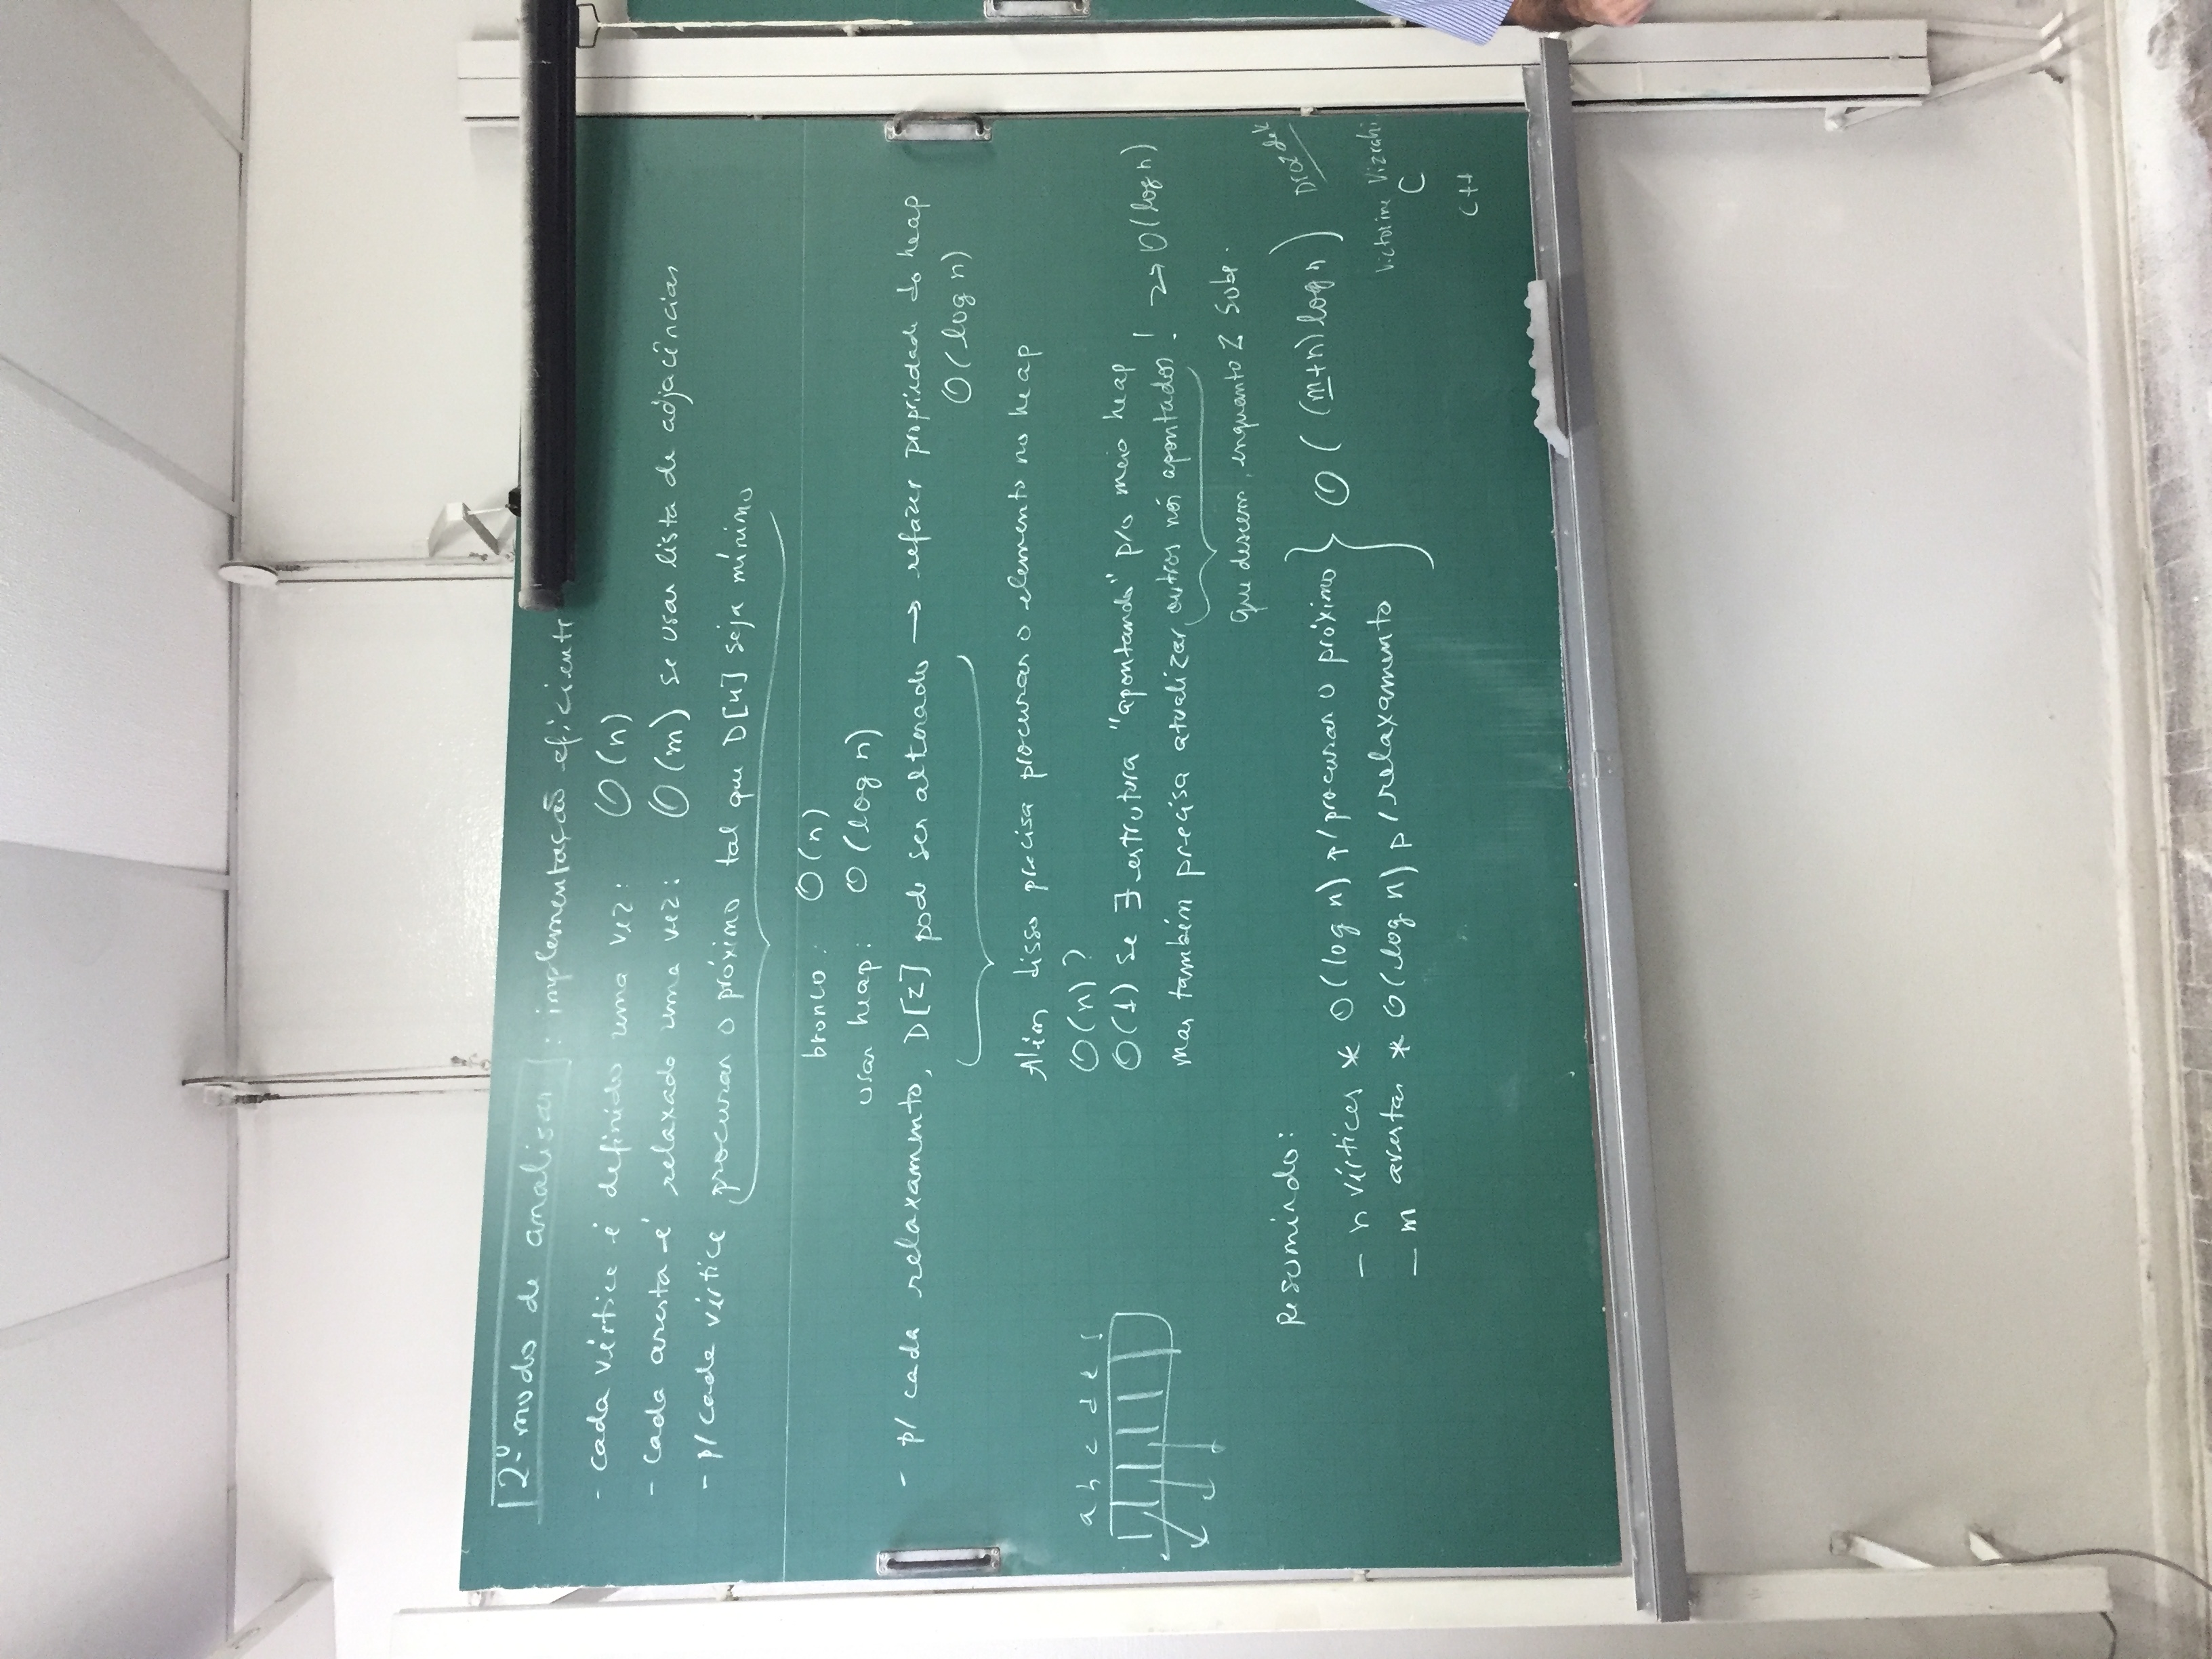 2º modo de analisar : implementação eficiente
- cada vértice é definido uma vez: O(n)
- cada aresta é relaxado uma vez: O(m) se usar lista de adjacências
- p/ cada vértice procurar o próximo tal que D[u] seja mínimo
bronco: O(n)
usar heap: O(log n)
- p/ cada relaxamento, D[z] pode ser alterado → refazer propriedade do heap
O(log n)
Além disso precisa procurar o elemento no heap
O(n)?
a b c d e f
O(1) se ∃ estrutura "apontando" p/o meio heap
mas também precisa atualizar outros nós apontados! → O(log n)
que descem, enquanto z sobe.
Resumindo:
- n vértices * O(log n) p/ procurar o próximo
- m arestas * O(log n) p/ relaxamento
O((m+n) log n)
Drozdek
Victorine Vizrahi
C
C++